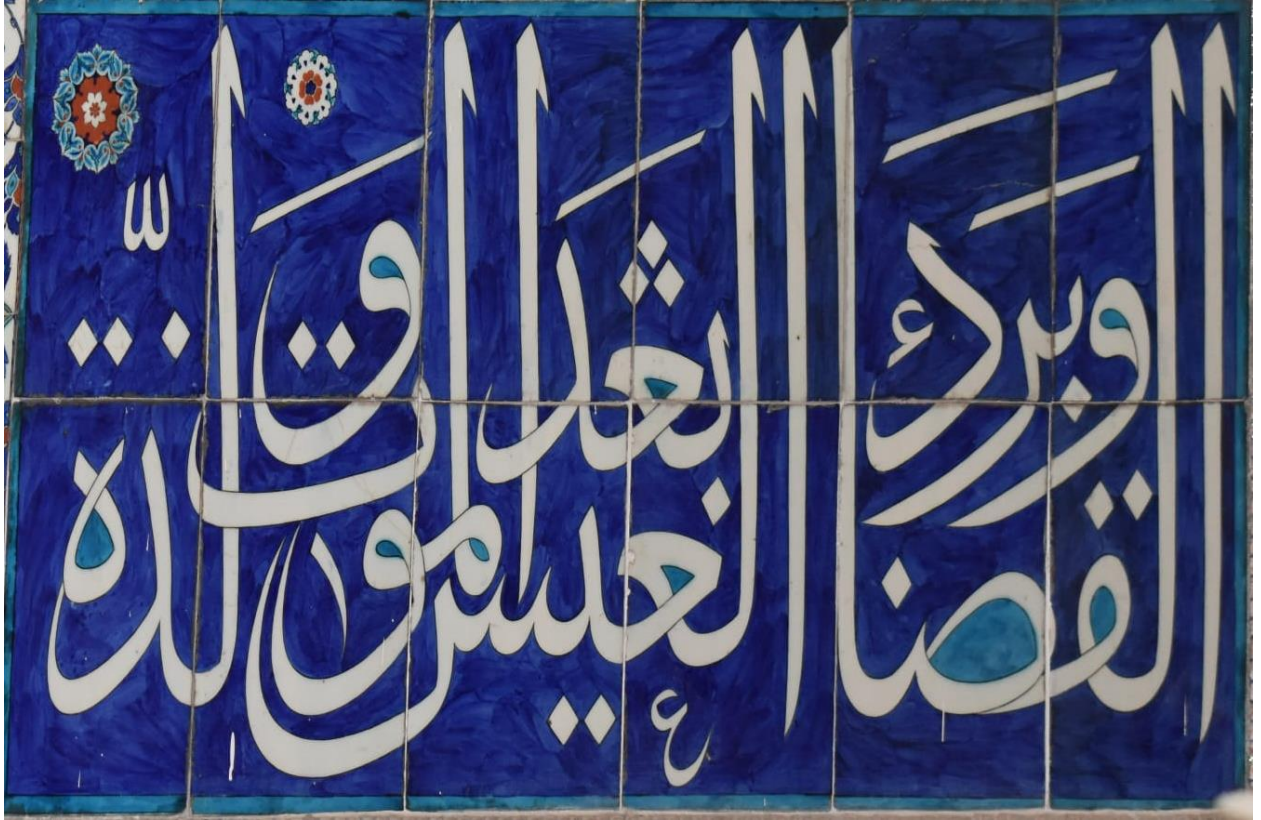 القضاء وبرد العيش بعد الموت ولذة